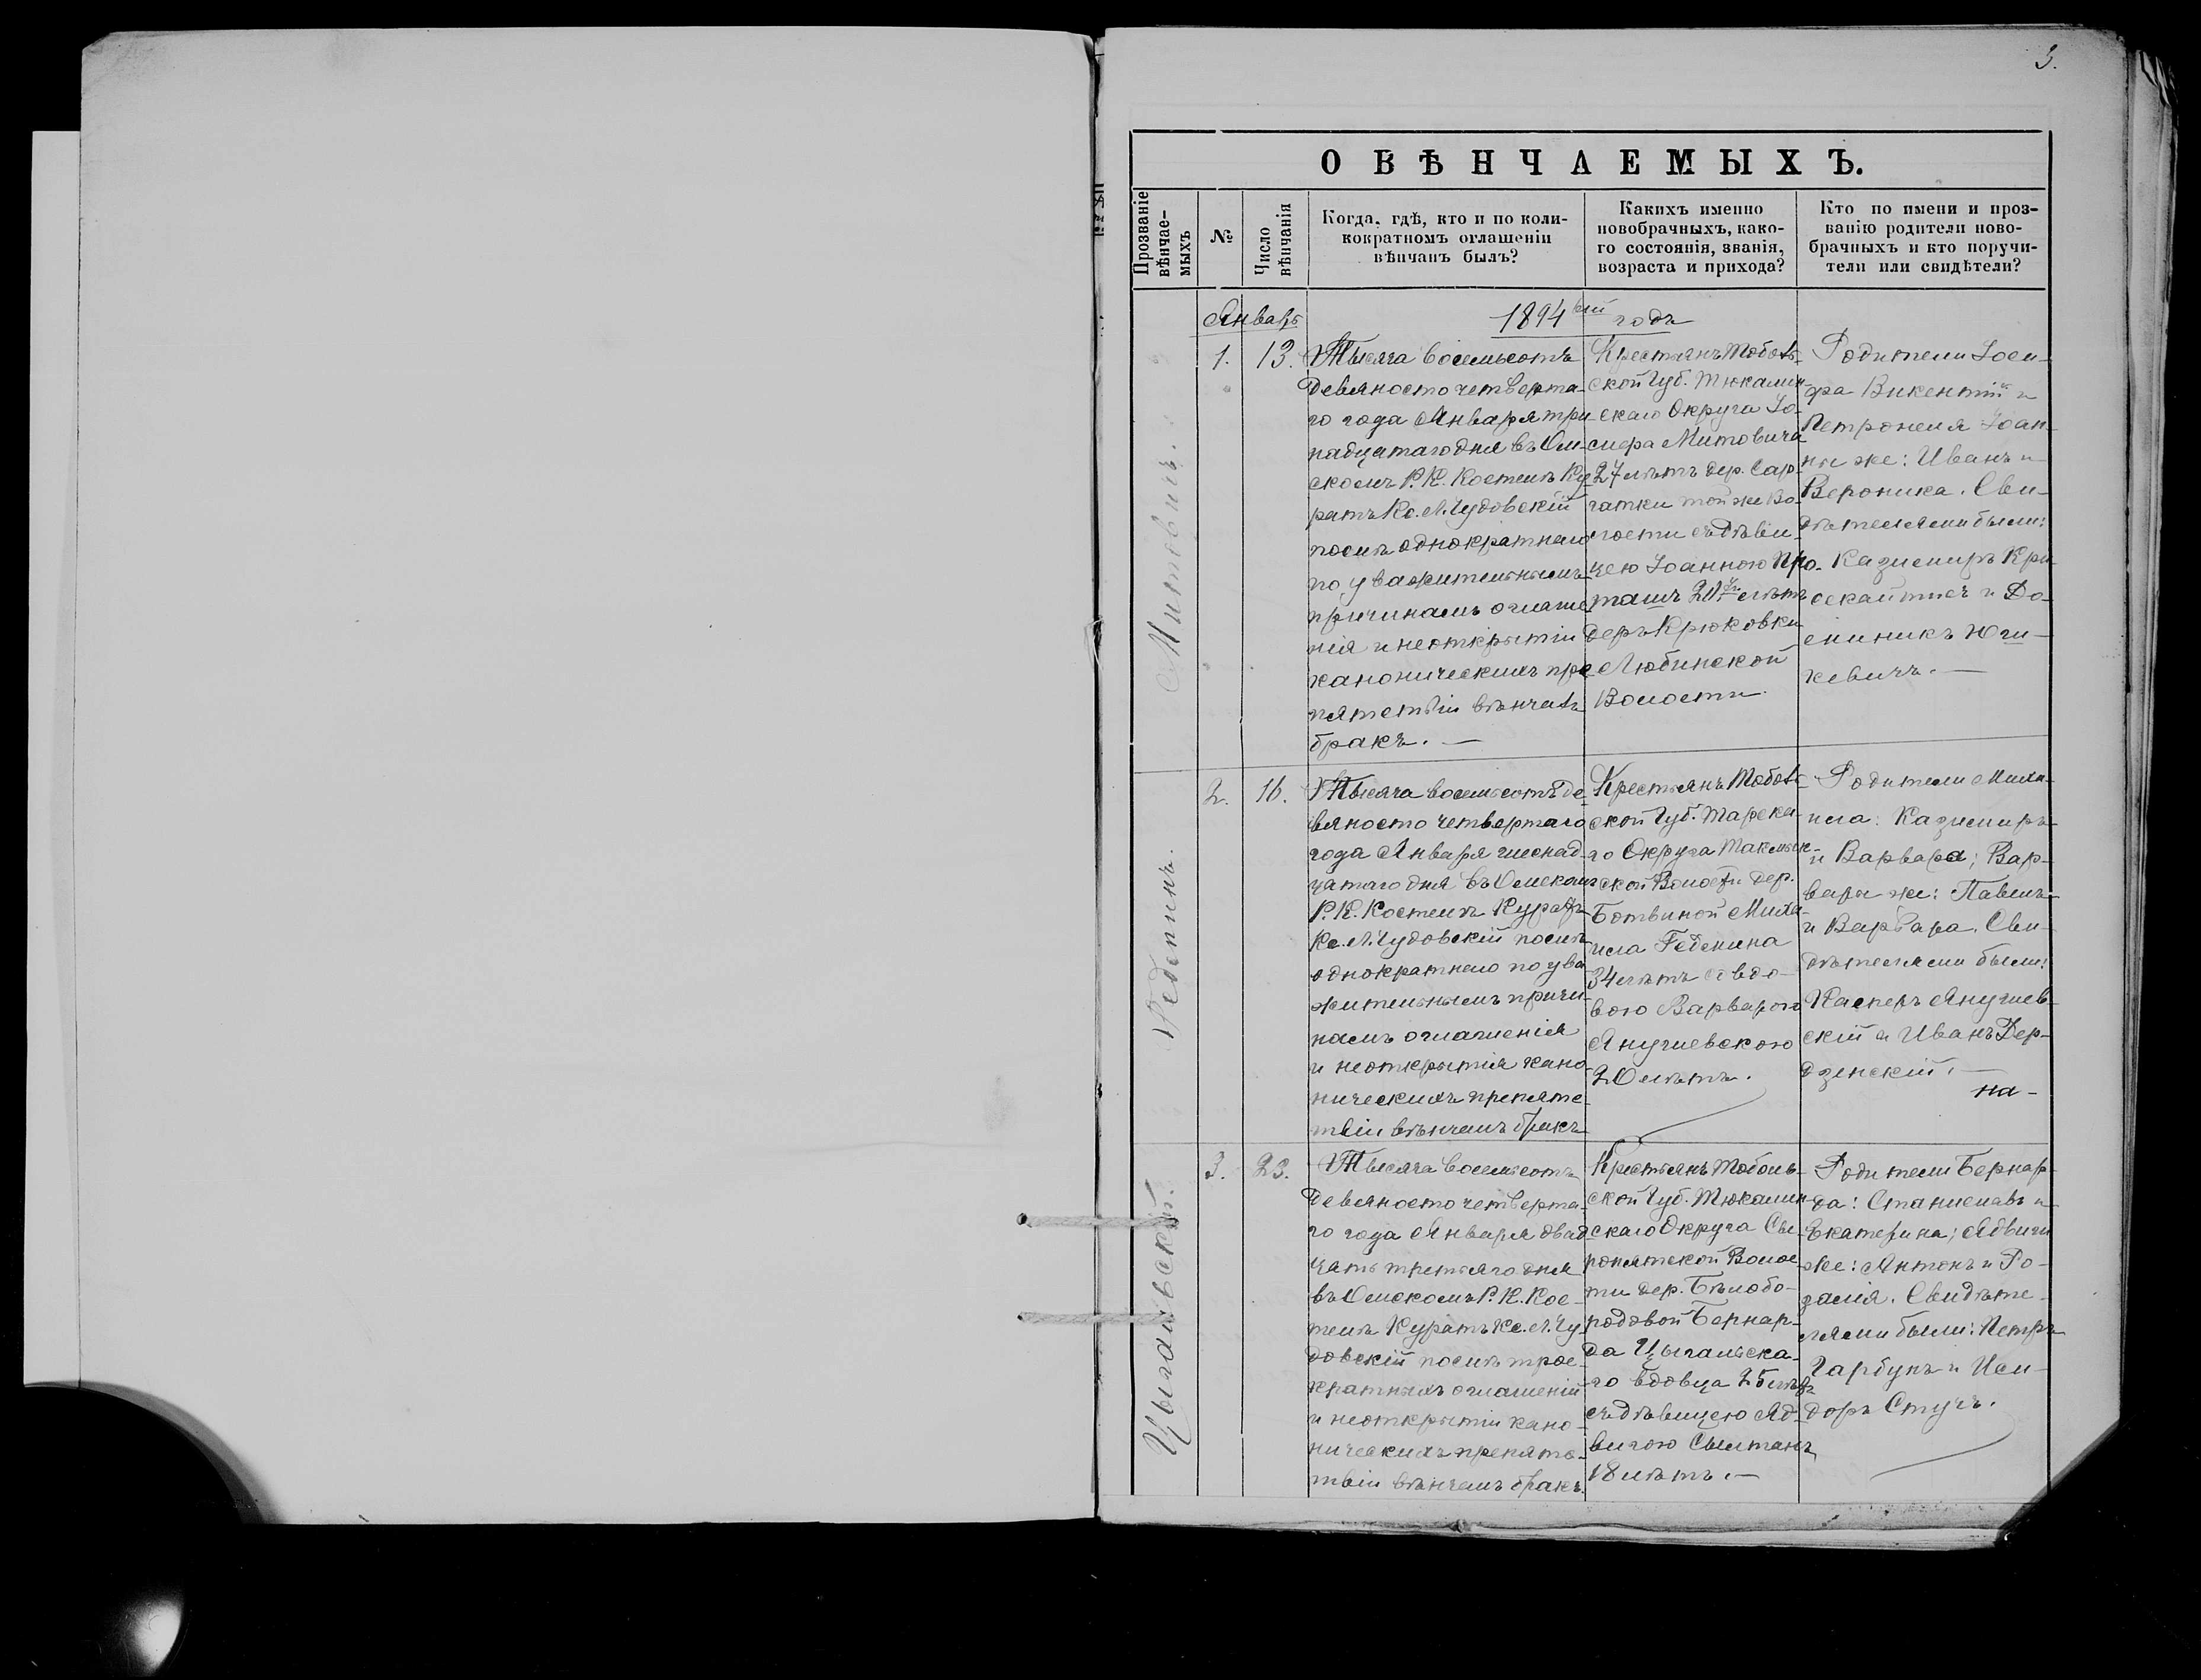 3.
О ВѢНЧАЕМЫХЪ.
Прозваніе
вѣнчае-
мыхъ
№
Число
вѣнчанія
Когда, гдѣ, кто и по коли-
кократномъ оглашеніи
вѣнчанъ былъ?
Какихъ именно
новобрачныхъ, како-
го состоянія, званія,
возраста и прихода?
Кто по имени и проз-
ванію родители ново-
брачныхъ и кто поручи-
тели или свидѣтели?
Январь
1894 ый годъ
Митовичъ.
1.
13.
Тысяча восемьсотъ
девяносто четверта-
го года Января три-
надцатаго дня въ Ом-
скомъ Р.К. Костелѣ Ку-
ратъ Кс. Л. Чудовскій
послѣ однократнаго
по уважительнымъ
причинамъ оглаше-
нія и неоткрытіи
каноническихъ пре
пятствій вѣнчалъ
бракъ. —
Крестьянъ Тоболь-
ской Губ. Тюкалин-
скаго Округа Іо-
сифа Митовича
27 лѣтъ дер. Сар-
гатки той же Во-
лости съ дѣви-
цею Іоанною Про-
ташъ 20 лѣтъ
деръ Крюковки
Любинской
Волости.
Родители Іоси-
фа Викентій и
Петронеля Іоан-
ны же: Иванъ и
Вероника. Сви-
дѣтелями были:
Казимиръ Кри-
скайтисъ и До-
миникъ Юш-
кевичъ. —
Феденинъ.
2.
16.
Тысяча восемьсотъ де-
вяносто четвертаго
года Января шеснад-
цатаго дня въ Омскомъ
Р.К. Костелѣ Куратъ
Кс. Л. Чудовскій послѣ
однократнаго по ува
жительнымъ причи-
намъ оглашенія
и неоткрытія кано-
ническихъ препятс-
твій вѣнчалъ бракъ
Крестьянъ Тоболь
ской Губ. Тарска-
го Округа Такмык-
ской Волости дер.
Ботвиной Миха-
ила Феденина
34 лѣтъ съ вдо-
вою Варварою
Янушевскою
20 лѣтъ.
Родители Миха-
ила: Казимиръ
и Варвара; Вар-
вары же: Павелъ
и Варвара. Сви-
дѣтелями были:
Касперъ Янушев-
скій и Иванъ Дер-
дзинскій. —
на-
Цыгальскій.
3.
23.
Тысяча восемьсотъ
девяносто четверта-
го года Января двад-
цать третьяго дня
въ Омскомъ Р.К. Кос-
телѣ Куратъ Кс. Л. Чу-
довскій послѣ трое-
кратныхъ оглашеній
и неоткрытіи кано-
ническихъ препятс-
твій вѣнчалъ бракъ.
Крестьянъ Тоболь-
ской Губ. Тюкалин-
скаго Округа Сы-
ропятской Волос
ти дер. Бѣлобо-
родовой Бернар-
да Цыгальска-
го вдовца 25 лѣтъ
съ дѣвицею Яд-
вигою Сылтанъ
18 лѣтъ. —
Родители Бернар-
да: Станиславъ и
Екатерина; Ядвиги
же: Антонъ и Ро-
залія. Свидѣте-
лями были: Петръ
Гарбунъ и Иси-
доръ Стучъ.